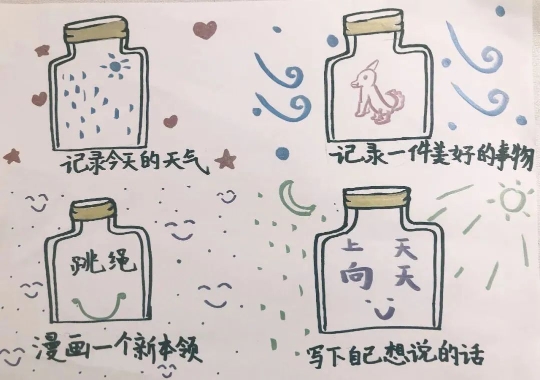 记录今天的天气
记录一件美好的事物
跳绳
漫画一个新本领
上 天
向 天
写下自己想说的话